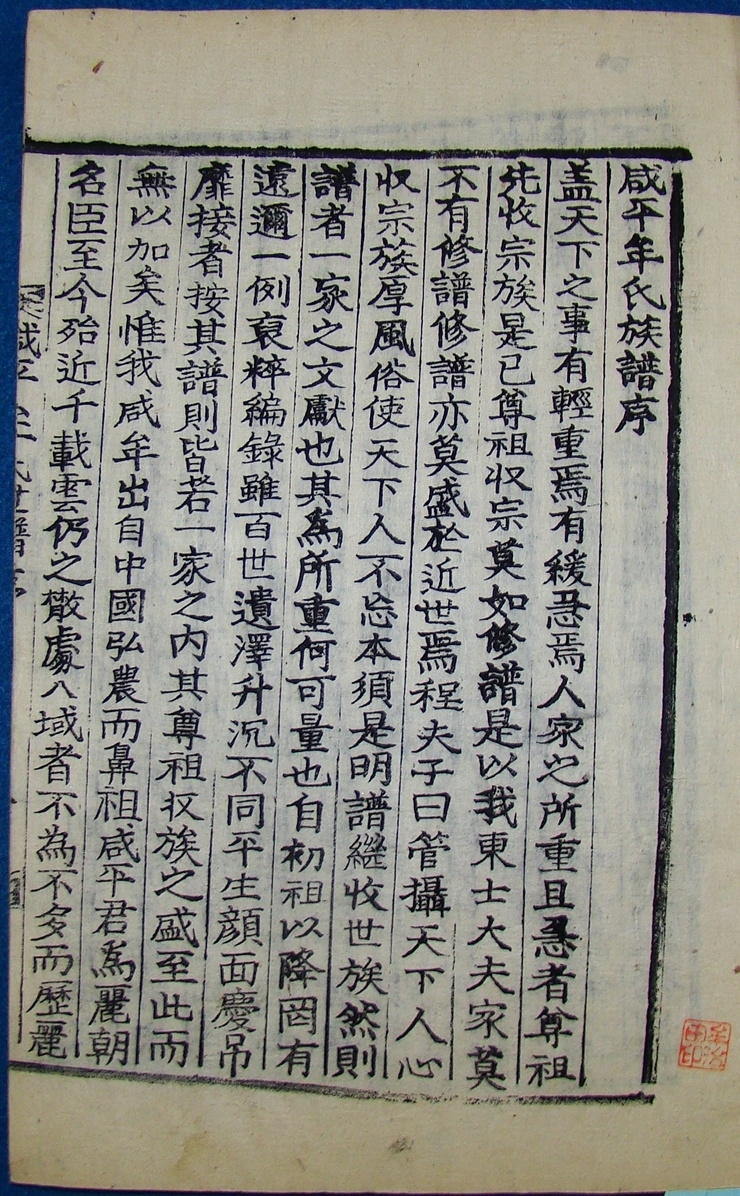 咸平年氏族譜序
盖天下之事有輕重焉有緩急焉人家之所重且急者尊祖
先收宗族是已尊祖収宗莫如修譜是以我東士大夫家莫
不有修譜修譜亦莫盛於近世焉程夫子曰管攝天下人心
収宗族厚風俗使天下人不忘本須是明譜継收世族然則
譜者一家之文獻也其爲所重何可量也自初祖以降罔有
遠邇一例裒粹編錄雖百世遺澤升沉不同平生顔面慶吊
靡接者按其譜則皆若一家之内其尊祖収族之盛至此而
無以加矣惟我咸牟出自中國弘農而鼻祖咸平君爲麗朝
名臣至今殆近千載雲仍之散處八域者不為不多而歷麗
咸平牟氏世譜序